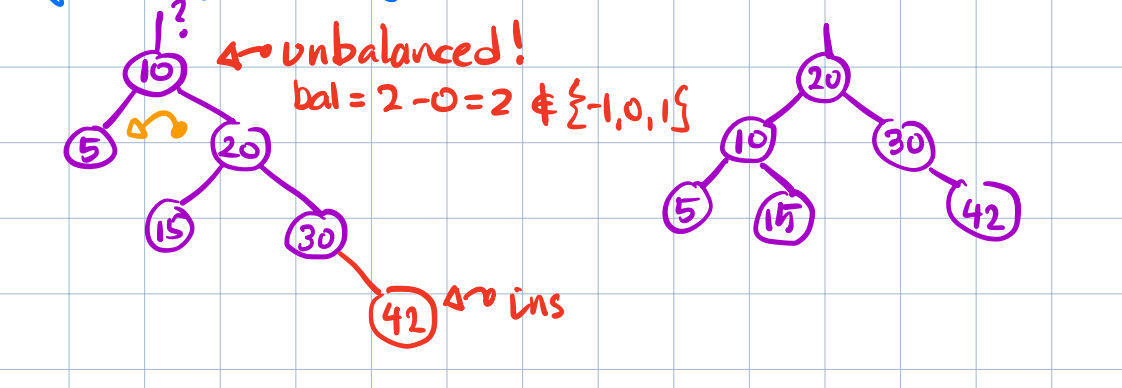 ?
10
unbalanced!
bal = 2 - 0 = 2 ∉ {-1, 0, 1}
5
20
15
30
42
ins
20
10
30
5
15
42